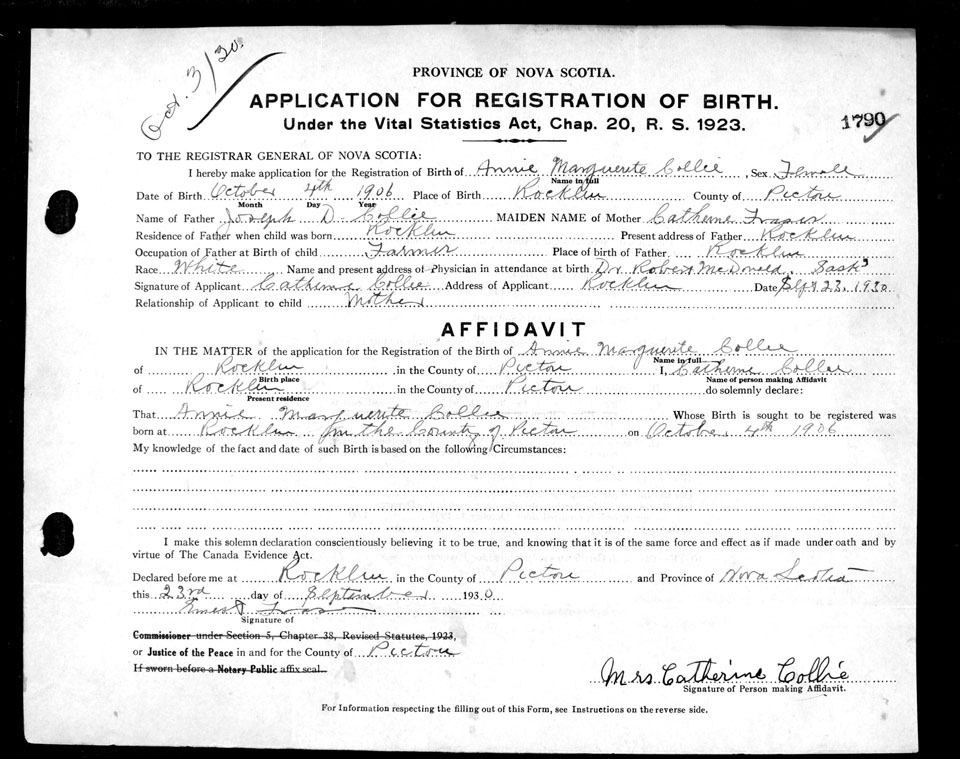 Oct. 3/30.
PROVINCE OF NOVA SCOTIA.
APPLICATION FOR REGISTRATION OF BIRTH.
Under the Vital Statistics Act, Chap. 20, R. S. 1923.
1790
TO THE REGISTRAR GENERAL OF NOVA SCOTIA:
I hereby make application for the Registration of Birth of Annie Marguerite Collie, Sex Female
Name in full
Date of Birth October 4th 1906 Place of Birth Rocklin County of Pictou
Month Day Year
Name of Father Joseph D. Collie MAIDEN NAME of Mother Catherine Fraser
Residence of Father when child was born Rocklin Present address of Father Rocklin
Occupation of Father at Birth of child Farmer Place of birth of Father Rocklin
Race White Name and present address of Physician in attendance at birth Dr. Robert McDonald. Sask
Signature of Applicant Catherine Collie Address of Applicant Rocklin Date Sept 23, 1930
Relationship of Applicant to child Mother
AFFIDAVIT
IN THE MATTER of the application for the Registration of the Birth of Annie Marguerite Collie
Name in full
of Rocklin in the County of Pictou I, Catherine Collie
Birth place Name of person making Affidavit
of Rocklin in the County of Pictou do solemnly declare:
Present residence
That Annie Marguerite Collie Whose Birth is sought to be registered was
born at Rocklin in the County of Pictou on October 4th 1906
My knowledge of the fact and date of such Birth is based on the following Circumstances:
I make this solemn declaration conscientiously believing it to be true, and knowing that it is of the same force and effect as if made under oath and by
virtue of The Canada Evidence Act.
Declared before me at Rocklin in the County of Pictou and Province of Nova Scotia
this 23rd day of September 1930
Ernest Fraser
Signature of
Commissioner under Section 5, Chapter 38, Revised Statutes, 1923,
or Justice of the Peace in and for the County of Pictou
If sworn before a Notary Public affix seal.
Mrs Catherine Collie
Signature of Person making Affidavit.
For Information respecting the filling out of this Form, see Instructions on the reverse side.